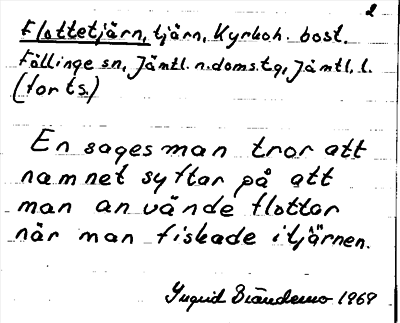 2
Flottetjärn, tjärn, Kyrkoh. bost.
Föllinge sn, Jämtl. n. doms.tg, Jämtl. l.
(forts.)
En sagesman tror att
namnet syftar på att
man använde flottar
när man fiskade i tjärnen.
Ingrid 1969